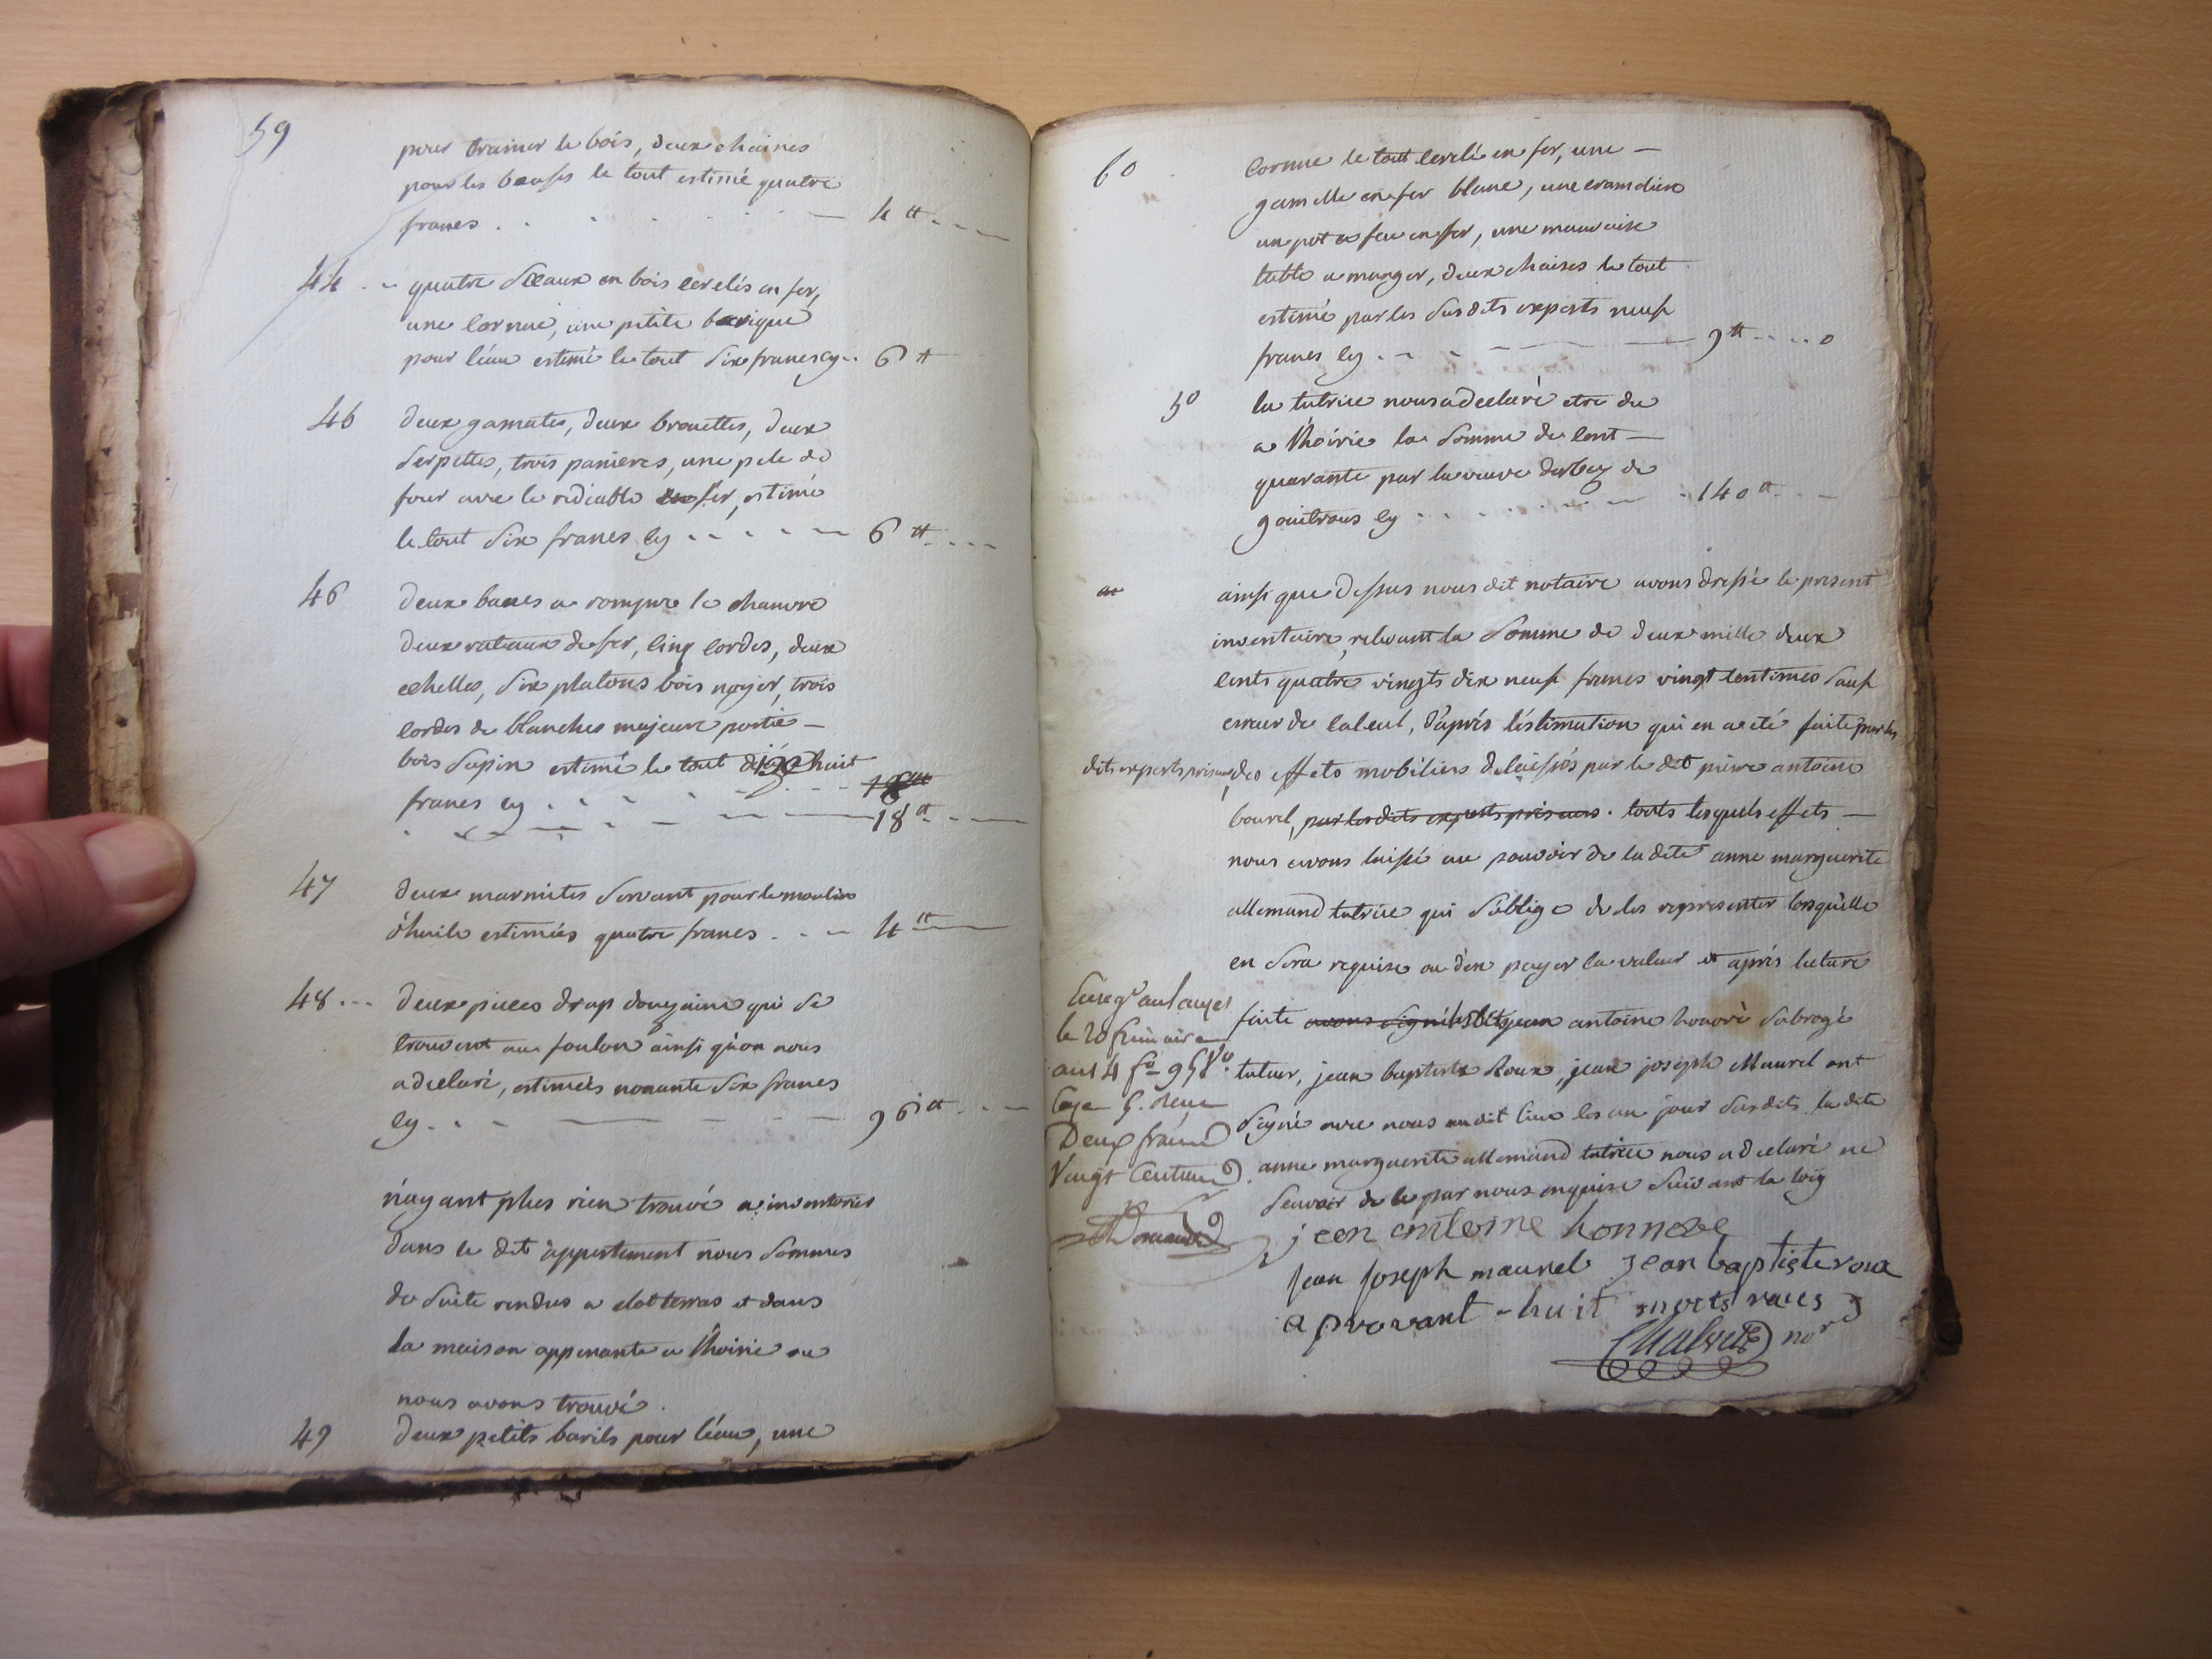 59
pour trainer le bois, deux chaines
pour les beufs le tout estimé quatre
francs . . . . . 4 tt
44 quatre sceaux en bois cerclés en fer,
une cornue, une petite barique
pour l'eau estimé le tout six francs cy . . 6 tt
46 deux gamates, deux brouettes, deux
serpettes, trois panieres, une pele de
four avec le rediable en fer, estimé
le tout six francs cy . . . . 6 tt
46 deux bancs a rompre le chanvre
deux rateaux de fer, cinq cordes, deux
echelles, six platons bois noyer, trois
cordes de blanches majeure partie
bois sapin estimé le tout dix huit
francs cy . . . . 18 tt
18 tt
47 deux marmites servant pour le moulin
d'huile estimées quatre francs . . . 4 tt
48 deux pieces drap douzaine qui se
trouvent au foulon ainsi qu'on nous
a declaré, estimées nonante six francs
cy . . . 96 tt
n'ayant plus rien trouvé a inventorier
dans le dit appartement nous sommes
de suite rendus a clot terras et dans
la maison appenante a l'hoirie ou
nous avons trouvé .
49 deux petits barils pour l'eau, une
60
cornue le tout cerclé en fer, une
gamelle en fer blanc, une
un pot a feu en fer, une mauvaise
table a manger, deux chaises le tout
estimé par les susdits experts neuf
francs cy . . . 9 tt . . . . 0
50 la tutrice nous a declaré etre du
a l'hoirie la somme de cent
quarante par la veuve de
cy . . . . 140 tt
ainsi que dessus nous dit notaire avons dressé le present
inventaire, relevant la somme de deux mille deux
cents quatre vingts dix neuf francs vingt centimes sauf
erreur de calcul, d'après l'estimation qui en a eté faite par les
dits experts priseurs, des effets mobiliers delaissés par le dit pierre antoine
bourel, par les dits experts priseurs . touts lesquels effets
nous avons laissé au pouvoir de la dite anne marguerite
allemand tutrice qui s'oblige de les representer lorsqu'elle
en sera requise ou d'en payer la valeur et après lecture
faite avons signé antoine honoré subrogé
tuteur, jean baptiste Roux, jean joseph Maurel ont
signé avec nous au dit lieu les an jour susdits la dite
anne marguerite allemand tutrice nous a declaré ne
scavoir de le par nous enquise suivant la loiy
Enreg.é
le 20 frimaire
an 14 f.o 95 V.o
Case 5. Reçu
Deux francs
Vingt Centimes
jean antoine honnore
jean joseph maurel jean baptiste roux
aprovant huit mots raies
no.re